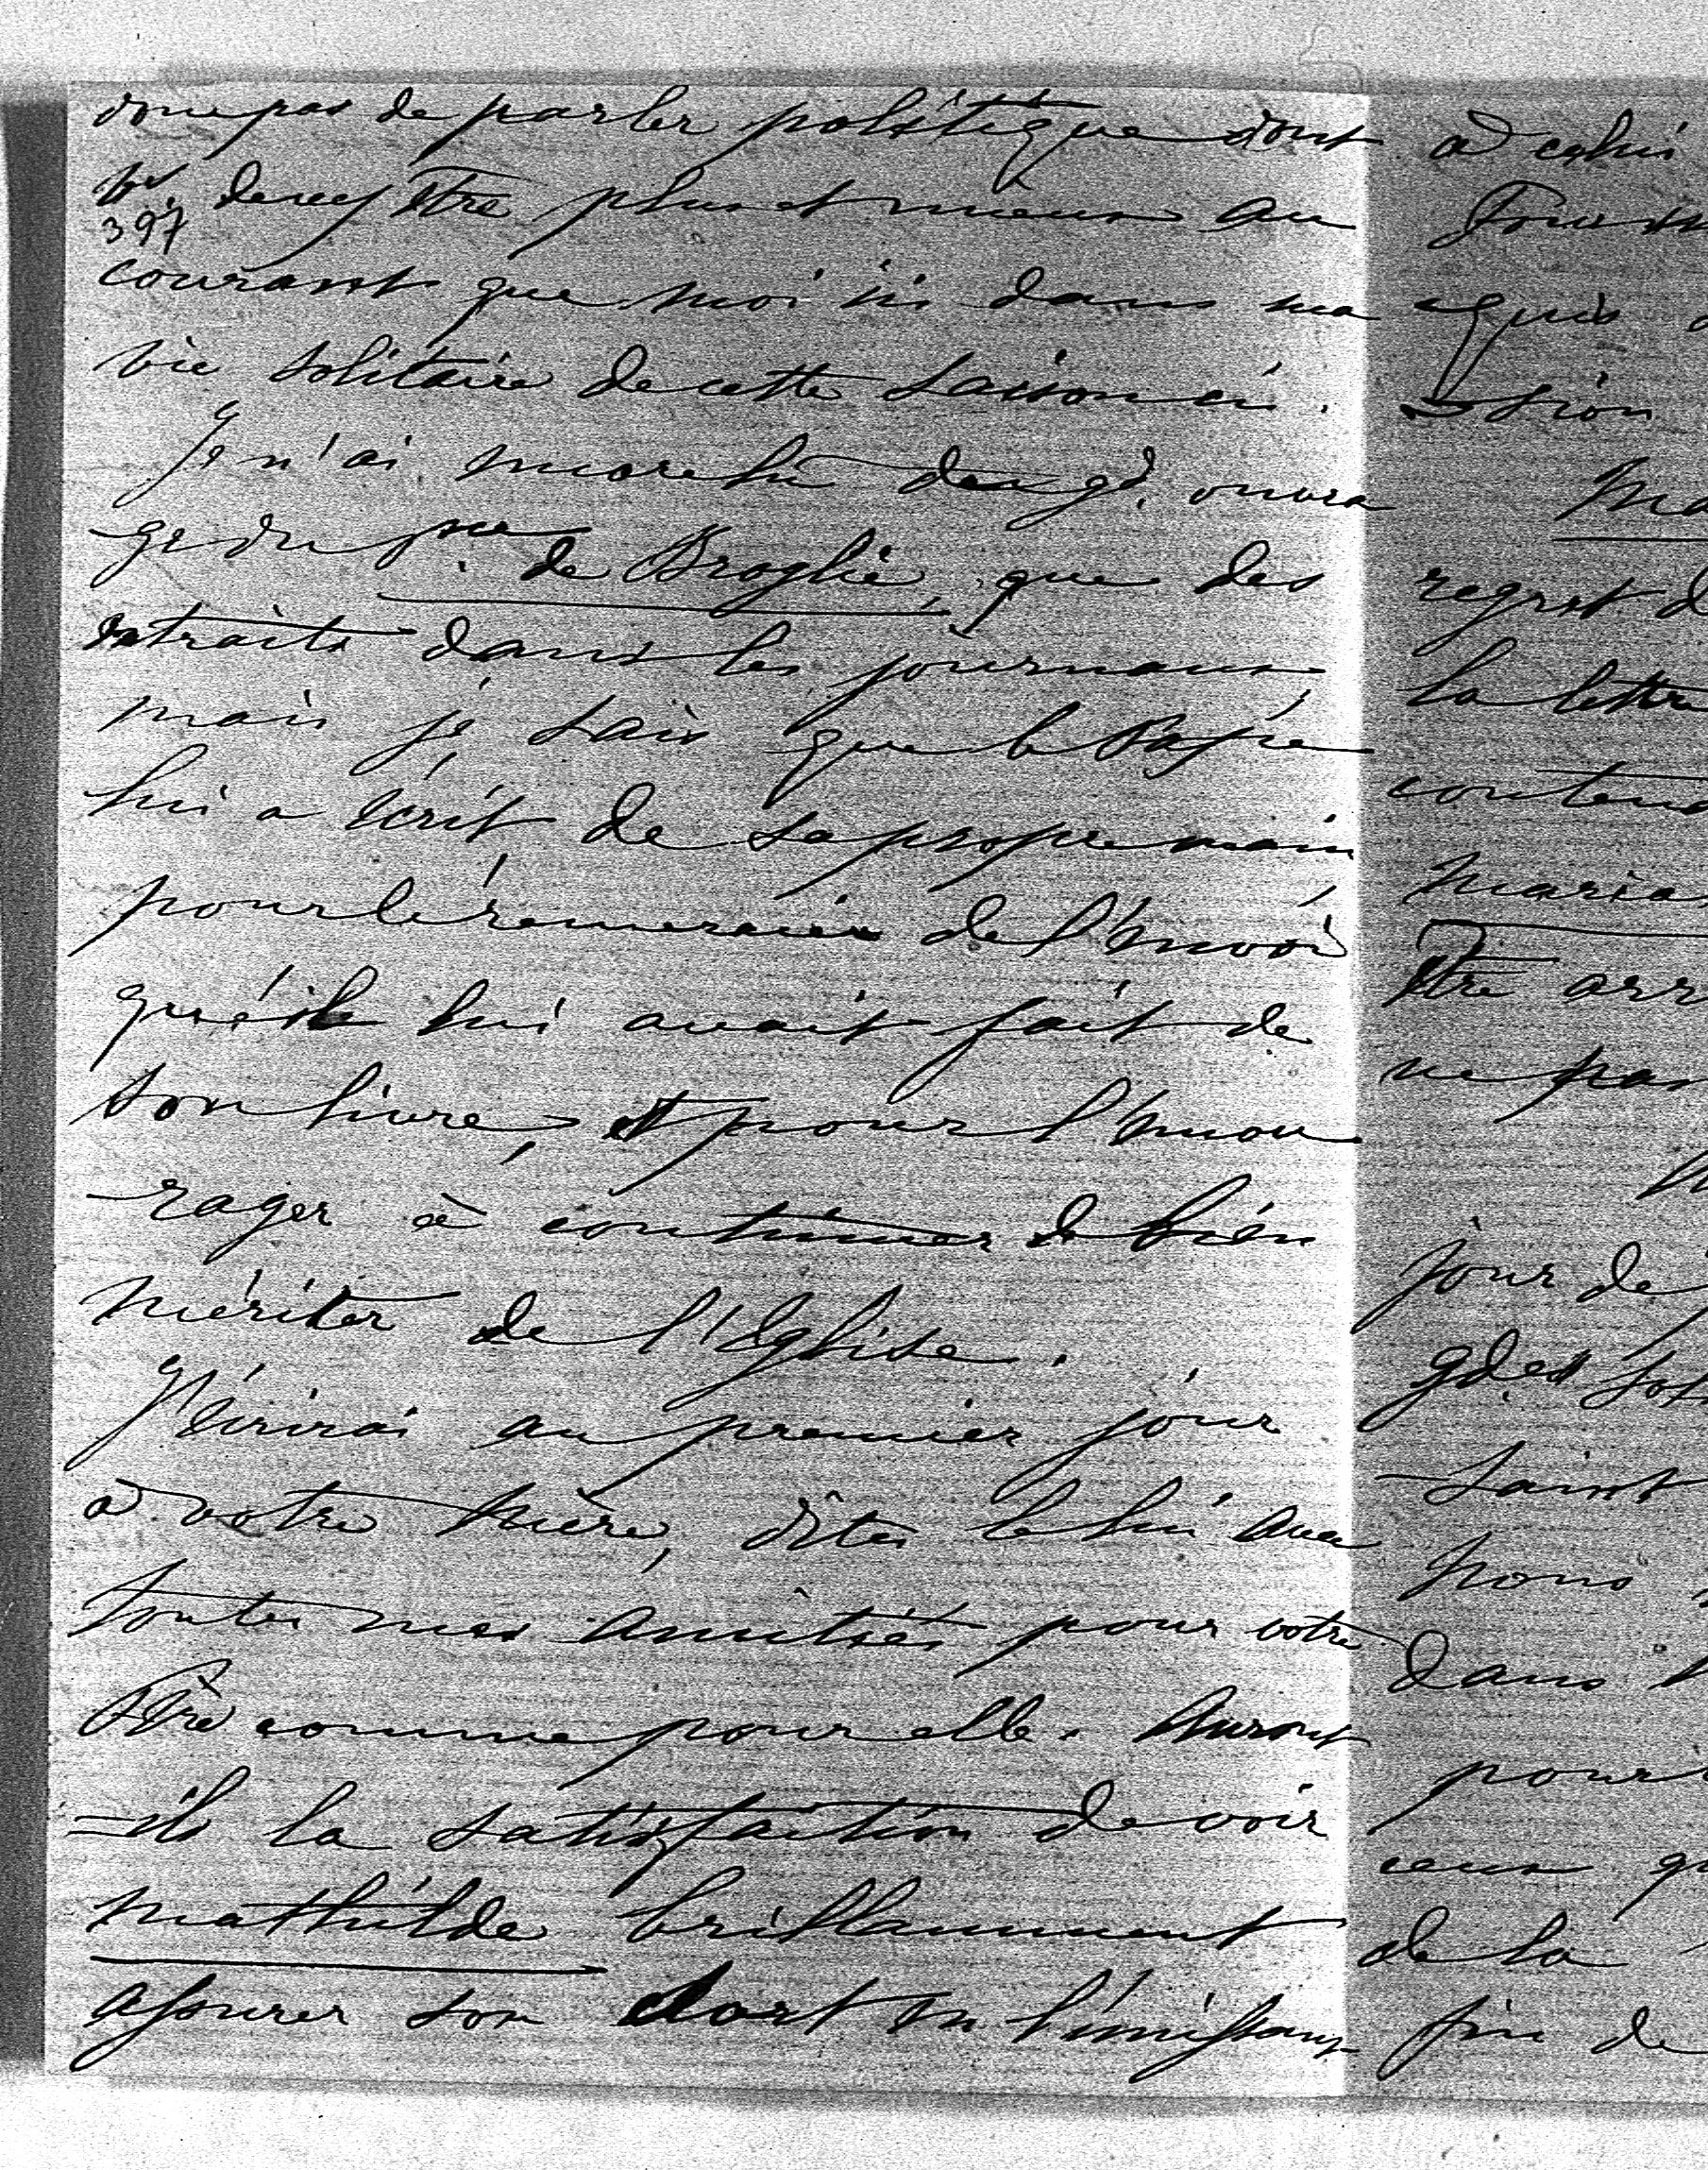 donc pas de parler politique dont
vs. devez être plus et mieux au
397
courant que moi ici dans ma
vie solitaire de cette saison ci.
Je n'ai encore lu du gd. ouvra
ge du pce. de Broglie, que des
extraits dans les journaux,
mais je sais que le Pape
lui a écrit de sa propre main
pour le remercier de l'envoi
qu'il lui avait fait de
son livre, et pour l'encou
rager à continuer de bien
mériter de l'Eglise.
J'écrirai au premier jour
à votre mère, dites le lui avec
toutes mes amitiés pour votre
Père comme pour elle. Auront
=ils la satisfaction de voir
Mathilde brillamment
assurer son sort en l'unissant
à celui
quis
sion
regret d
la lettre
conten
maria
être arr
ne pas
jour de
gdes
Saint
nous
dans
pour
ceux q
de la
fin de